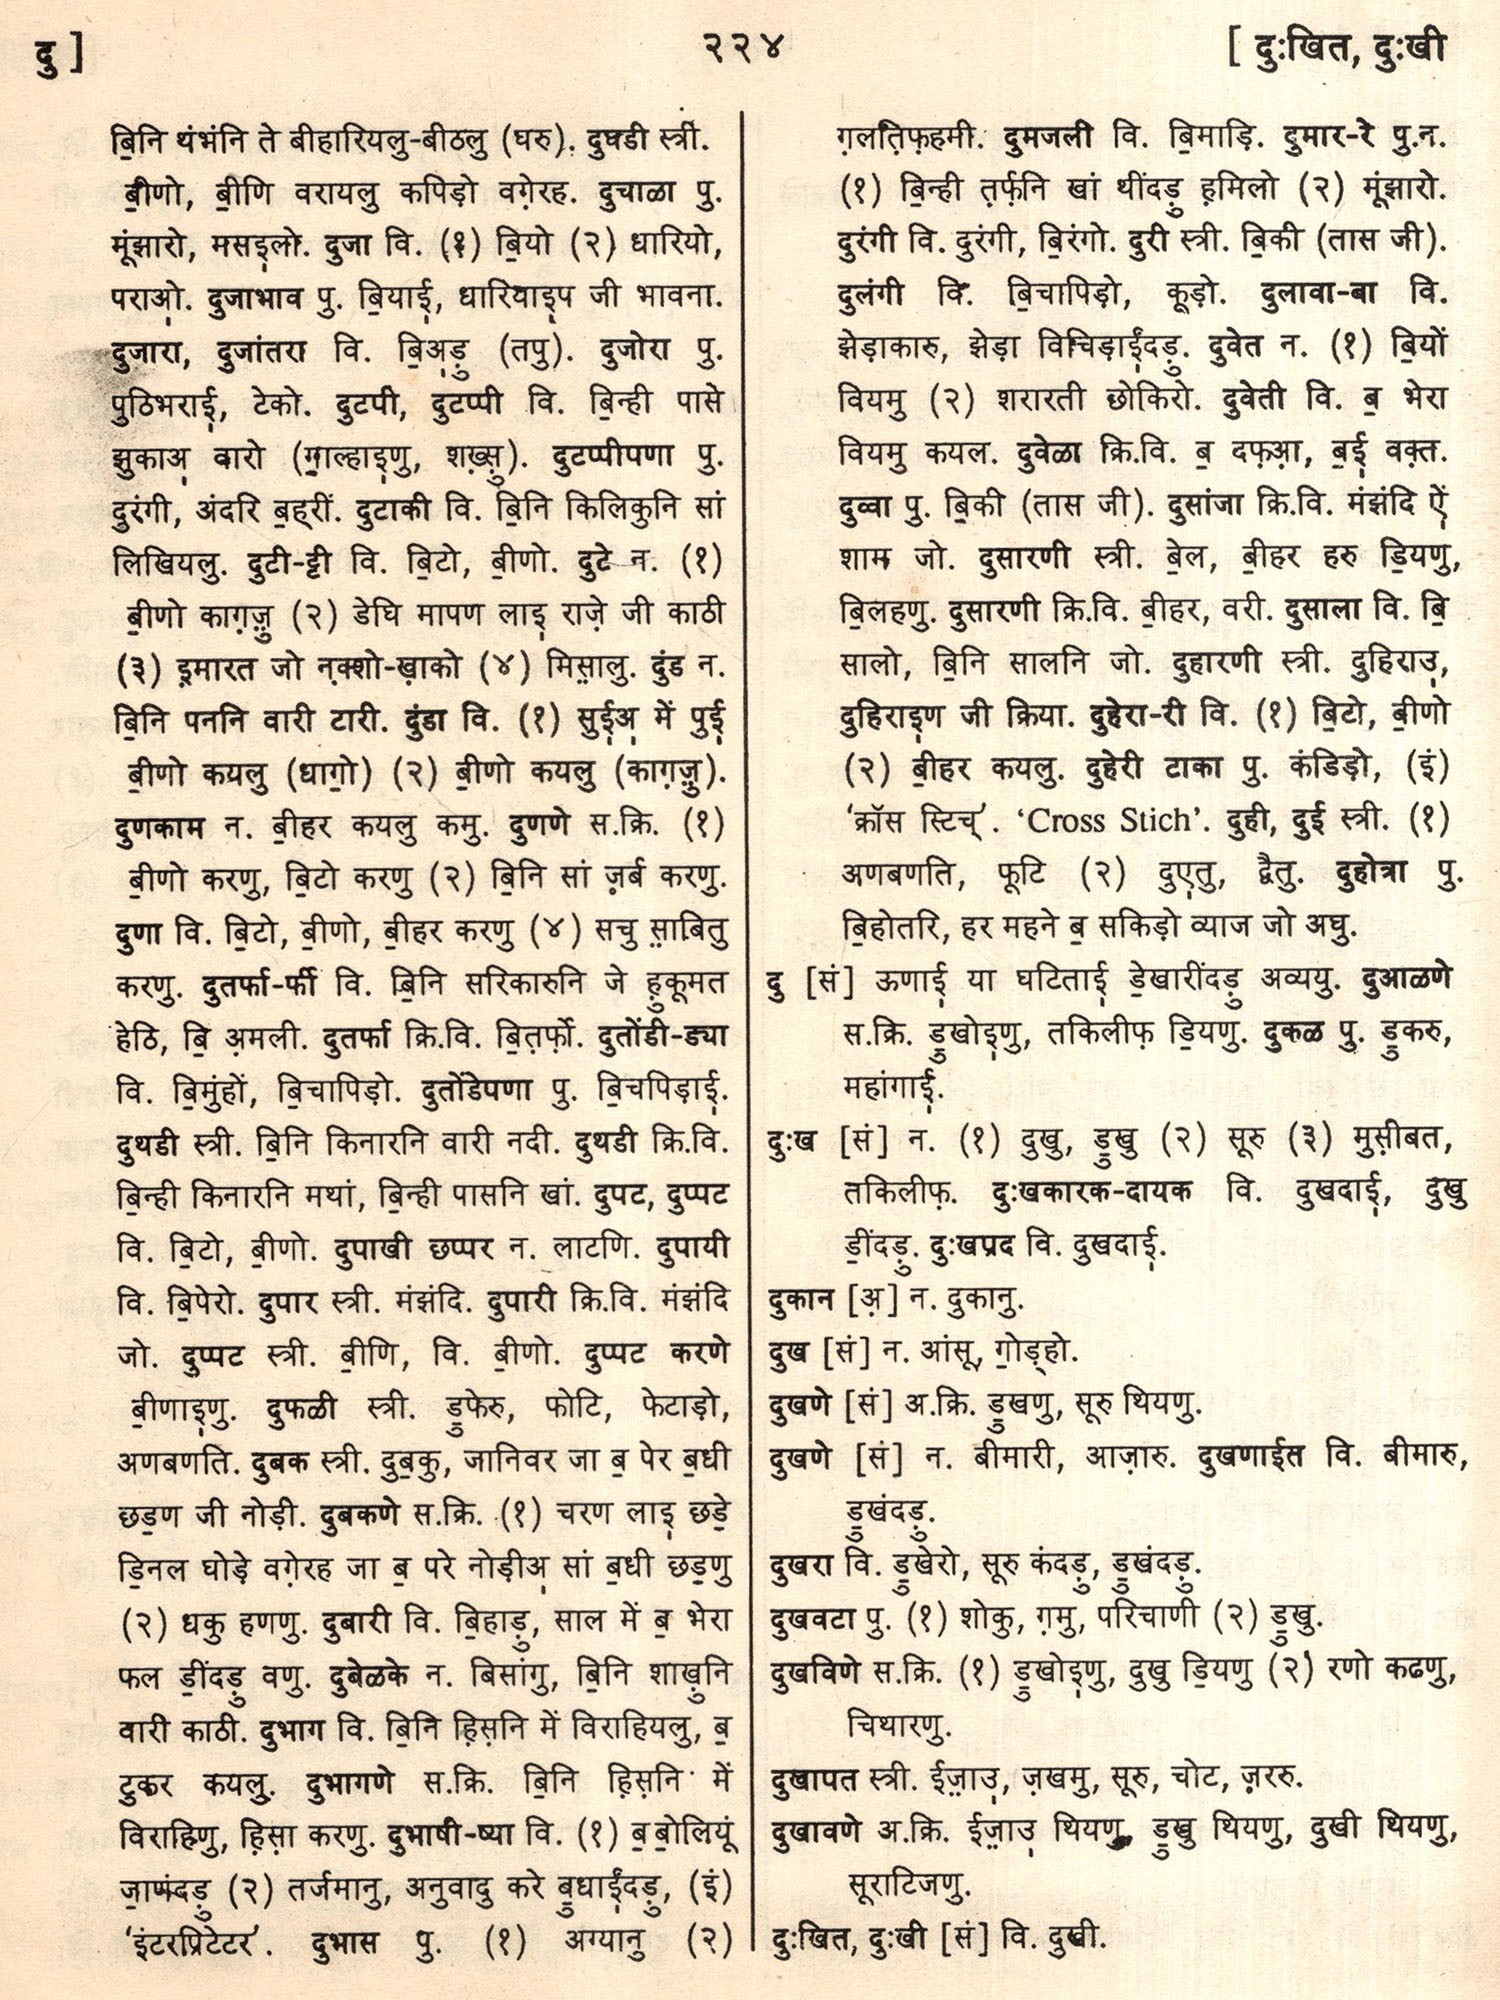 दु ]
२२४
[ दुःखित, दुःखी
ॿिनि थंभंनि ते बीहारियलु-बीठलु (घरु). दुघडी स्त्री.
ॿीणो, ॿीणि वरायलु कपिड़ो वग़ेरह. दुचाळा पु.
मूंझारो, मसइ॒लो. दुजा वि. (१) ॿियो (२) धारियो,
पराओ॒. दुजाभाव पु. ॿियाई॒, धारियाइ॒प जी भावना.
दुजारा, दुजांतरा वि. ॿिअ॒ड़ु (तपु). दुजोरा पु.
पुठिभराई॒, टेको. दुटपी, दुटप्पी वि. ॿिन्ही पासे
झुकाअ॒ वारो (ॻाल्हाइ॒णु, शख़्सु़). दुटप्पीपणा पु.
दुरंगी, अंदरि ॿह्रीं. दुटाकी वि. ॿिनि किलिकुनि सां
लिखियलु. दुटी-ट्टी वि. ॿिटो, ॿीणो. दुटे न. (१)
ॿीणो काग़ज़ु (२) डेघि मापण लाइ॒ राज़े जी काठी
(३) इ़मारत जो नक़्शो-ख़ाको (४) मिसा़लु. दुंड न.
ॿिनि पननि वारी टारी. दुंडा वि. (१) सुई॒अ॒ में पुई॒
ॿीणो कयलु (धाॻो) (२) ॿीणो कयलु (काग़ज़ु).
दुणकाम न. ॿीहर कयलु कमु. दुणणे स.क्रि. (१)
ॿीणो करणु, ॿिटो करणु (२) ॿिनि सां ज़र्ब करणु.
दुणा वि. ॿिटो, ॿीणो, ॿीहर करणु (४) सचु सा़बितु
करणु. दुतर्फा-र्फी वि. ॿिनि सरिकारुनि जे हु़कूमत
हेठि, ॿि अ़मली. दुतर्फा क्रि.वि. ॿित़र्फ़ो. दुतोंडी-ड्या
वि. ॿिमुंहों, ॿिचापिड़ो. दुतोंडेपणा पु. ॿिचपिड़ाई॒.
दुथडी स्त्री. ॿिनि किनारनि वारी नदी. दुथडी क्रि.वि.
ॿिन्ही किनारनि मथां, ॿिन्ही पासनि खां. दुपट, दुप्पट
वि. ॿिटो, ॿीणो. दुपाखी छप्पर न. लाटणि. दुपायी
वि. ॿिपेरो. दुपार स्त्री. मंझंदि. दुपारी क्रि.वि. मंझंदि
जो. दुप्पट स्त्री. ॿीणि, वि. ॿीणो. दुप्पट करणे
ॿीणाइ॒णु. दुफळी स्त्री. ॾुफेरु, फोटि, फेटाड़ो,
अणबणति. दुबक स्त्री. दुॿकु, जानिवर जा ॿ पेर ॿधी
छॾण जी नोड़ी. दुबकणे स.क्रि. (१) चरण लाइ॒ छॾे
ॾिनल घोड़े वग़ेरह जा ॿ परे नोड़ीअ॒ सां ॿधी छॾणु
(२) धकु हणणु. दुबारी वि. ॿिहाड़ु, साल में ॿ भेरा
फल ॾींदड़ु वणु. दुबेळके न. बिसांगु, ॿिनि शाख़ुनि
वारी काठी. दुभाग वि. ॿिनि हि़स़नि में विराहियलु, ॿ
टुकर कयलु. दुभागणे स.क्रि. ॿिनि हि़स़नि में
विराहिणु, हि़सा़ करणु. दुभाषी-ष्या वि. (१) ॿ ॿोलियूं
ॼाणंदड़ु (२) तर्जमानु, अनुवादु करे ॿुधाई॒ंदड़ु, (इं)
‘इंटरप्रिटेटर’. दुभास पु. (१) अग्यानु (२)
ग़लति़फ़हमी. दुमजली वि. ॿिमाड़ि. दुमार-रे पु.न.
(१) ॿिन्ही त़र्फ़नि खां थींदड़ु ह़मिलो (२) मूंझारो.
दुरंगी वि. दुरंगी, ॿिरंगो. दुरी स्त्री. ॿिकी (तास जी).
दुलंगी वि. ॿिचापिड़ो, कूड़ो. दुलावा-बा वि.
झेड़ाकारु, झेड़ा विचिड़ाई॒ंदड़ु. दुवेत न. (१) ॿियों
वियमु (२) शरारती छोकिरो. दुवेती वि. ॿ भेरा
वियमु कयल. दुवेळा क्रि.वि. ॿ दफ़आ़, ॿई॒ वक़्त.
दुव्वा पु. ॿिकी (तास जी). दुसांजा क्रि.वि. मंझंदि ऐं॒
शाम जो. दुसारणी स्त्री. ॿेल, ॿीहर हरु ॾियणु,
ॿिलहणु. दुसारणी क्रि.वि. ॿीहर, वरी. दुसाला वि. ॿि
सालो, ॿिनि सालनि जो. दुहारणी स्त्री. दुहिराउ॒,
दुहिराइ॒ण जी क्रिया. दुहेरा-री वि. (१) ॿिटो, ॿीणो
(२) ॿीहर कयलु. दुहेरी टाका पु. कंडिड़ो, (इं)
‘क्रॉस स्टिच्’. ‘Cross Stich’. दुही, दुई स्त्री. (१)
अणबणति, फूटि (२) दुए॒तु, द्वैतु. दुहोत्रा पु.
ॿिहोतरि, हर महने ॿ सकिड़ो व्याज जो अघु.
दु [सं] ऊणाई॒ या घटिताई॒ ॾेखारींदड़ु अव्ययु. दुआळणे
स.क्रि. ॾुखोइ॒णु, तकिलीफ़ ॾियणु. दुकळ पु. ॾुकरु,
महांगाई॒.
दुःख [सं] न. (१) दुखु, ॾुखु (२) सूरु (३) मुसी़बत,
तकिलीफ़. दुःखकारक-दायक वि. दुखदाई॒, दुखु
ॾींदड़ु. दुःखप्रद वि. दुखदाई॒.
दुकान [अ़] न. दुकानु.
दुख [सं] न. आंसू, ॻोड़्हो.
दुखणे [सं] अ.क्रि. ॾुखणु, सूरु थियणु.
दुखणे [सं] न. बीमारी, आज़ारु. दुखणाईत वि. बीमारु,
ॾुखंदड़ु.
दुखरा वि. ॾुखेरो, सूरु कंदड़ु, ॾुखंदड़ु.
दुखवटा पु. (१) शोकु, ग़मु, परिचाणी (२) ॾुखु.
दुखविणे स.क्रि. (१) ॾुखोइ॒णु, दुखु ॾियणु (२) रणो कढणु,
चिथारणु.
दुखापत स्त्री. ईज़ाउ॒, ज़खमु, सूरु, चोट, ज़ररु.
दुखावणे अ.क्रि. ईज़ाउ॒ थियणु, ॾुखु थियणु, दुखी थियणु,
सूराटिजणु.
दुःखित, दुःखी [सं] वि. दुखी.